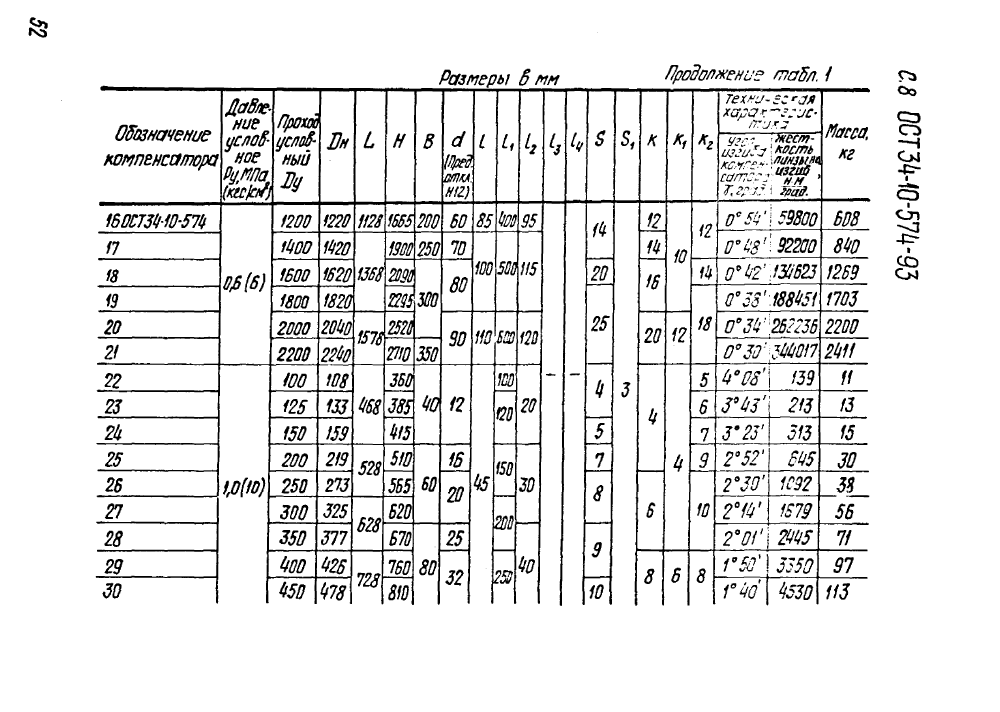 52
С.8 ОСТ34-10-574-93
Размеры в мм
Продолжение табл. 1
Обозначение компенсатора | Давление условное Ру, МПа (кгс/см²) | Проход условный Dу | Dн | L | H | B | d (Пред. откл. H12) | l | l₁ | l₂ | l₃ | l₄ | S | S₁ | K | K₁ | K₂ | Техническая характеристика | Масса, кг
Угол изгиба компенсатора, град. | жесткость линзы на изгиб, Н·м/град.
16 ОСТ34-10-574 | 0,6 (6) | 1200 | 1220 | 1128 | 1665 | 200 | 60 | 85 | 400 | 95 | – | – | 14 | 3 | 12 | 10 | 12 | 0°54' | 59800 | 608
17 | 1400 | 1420 | 1368 | 1900 | 250 | 70 | 100 | 500 | 115 | 14 | 0°48' | 92200 | 840
18 | 1600 | 1620 | 2090 | 300 | 80 | 20 | 16 | 14 | 0°42' | 134623 | 1269
19 | 1800 | 1820 | 2295 | 25 | 18 | 0°38' | 188451 | 1703
20 | 2000 | 2040 | 1578 | 2520 | 90 | 110 | 600 | 120 | 20 | 12 | 0°34' | 262236 | 2200
21 | 2200 | 2240 | 2710 | 350 | 0°30' | 344017 | 2411
22 | 1,0 (10) | 100 | 108 | 468 | 360 | 40 | 12 | 45 | 100 | 20 | 4 | 4 | 4 | 5 | 4°08' | 139 | 11
23 | 125 | 133 | 385 | 120 | 6 | 3°43' | 213 | 13
24 | 150 | 159 | 415 | 5 | 7 | 3°23' | 313 | 15
25 | 200 | 219 | 528 | 510 | 60 | 16 | 150 | 30 | 7 | 9 | 2°52' | 645 | 30
26 | 250 | 273 | 565 | 20 | 8 | 6 | 10 | 2°30' | 1092 | 38
27 | 300 | 325 | 628 | 620 | 200 | 2°14' | 1679 | 56
28 | 350 | 377 | 670 | 80 | 25 | 40 | 9 | 2°01' | 2445 | 71
29 | 400 | 426 | 728 | 760 | 32 | 250 | 8 | 6 | 8 | 1°50' | 3350 | 97
30 | 450 | 478 | 810 | 10 | 1°40' | 4530 | 113